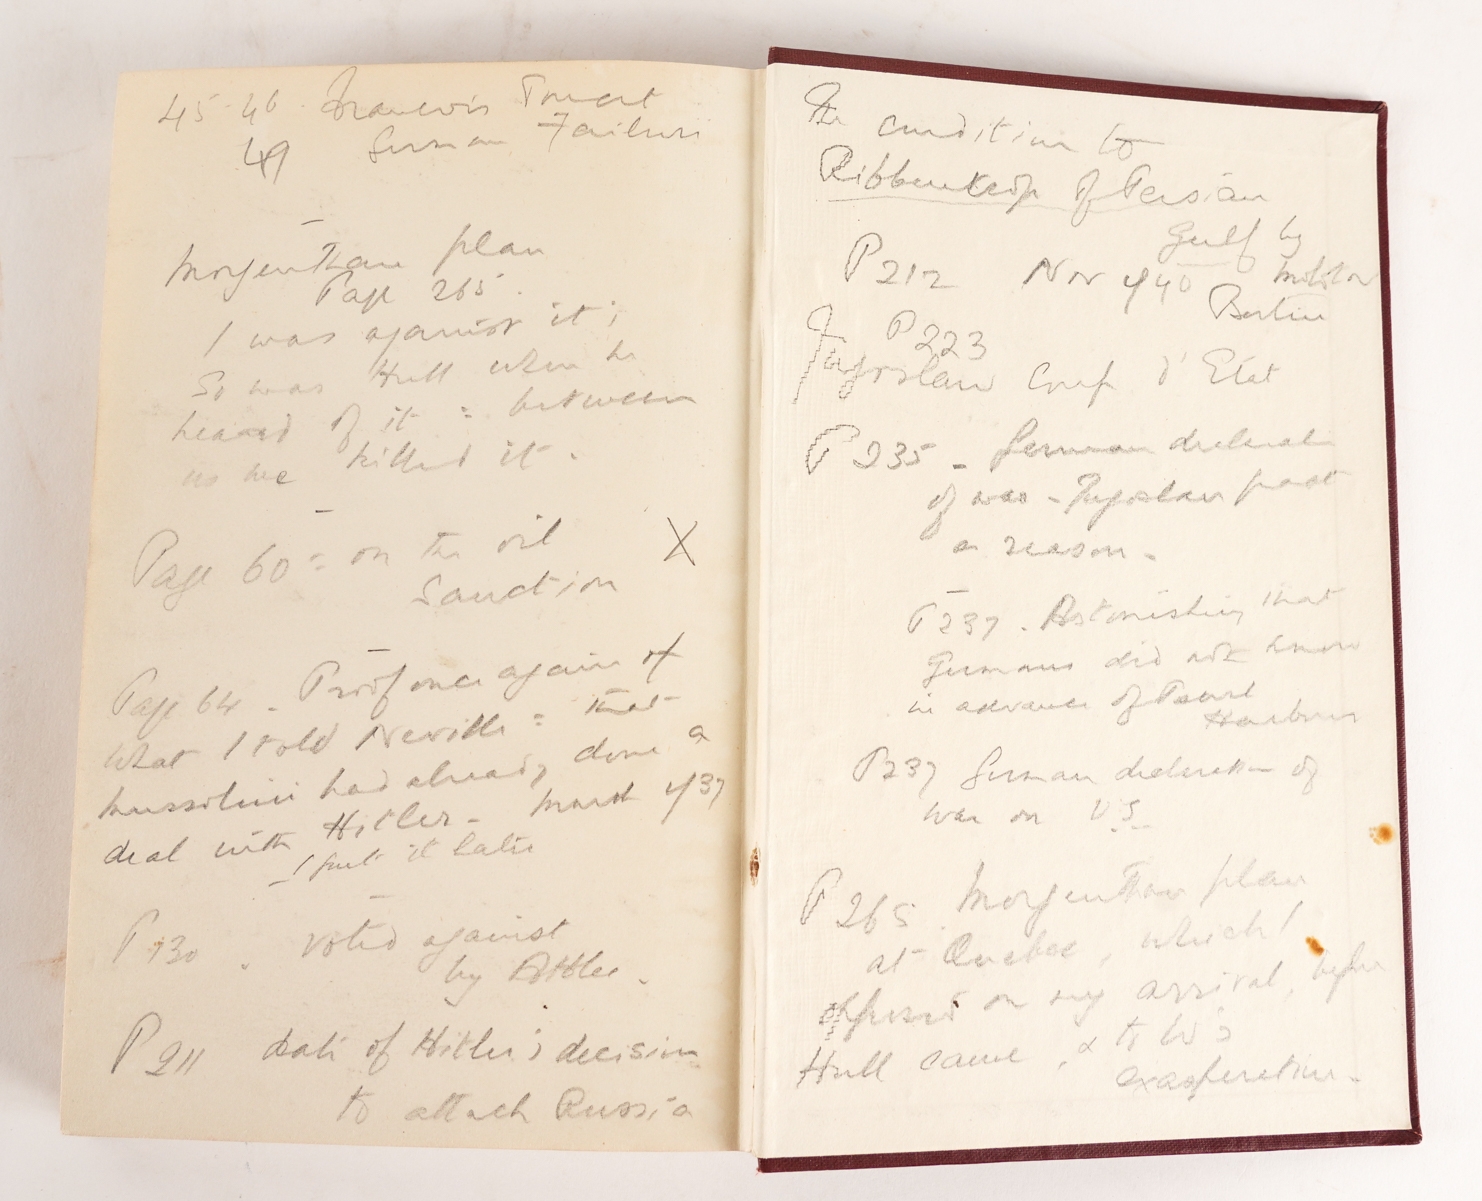 45-46
German Failure
49
Morgenthau plan
Page 265.
I was against it;
So was Hull when he
heard of it = between
us we killed it.
Page 60 = on the oil X
Sanction
Page 64 - Proof once again of
what I told Neville = that
Mussolini had already done a
deal with Hitler - March 1937
I put it later
P 130 . voted against
by Attlee.
P 211 date of Hitler's decision
to attack Russia
The condition to
Ribbentrop of Persian
Gulf by
P 212 Nov 1940 Molotov
Berlin
P 223
Jugoslav Coup d'Etat
P 235 - German
of war - Jugoslav
a reason -
P 237 . Astonishing that
Germans did not know
in advance of Pearl
Harbour
P 237 German declaration of
war on U.S.
P 265 . Morgenthau plan
at Quebec, which I
opposed on my arrival, before
Hull came, & to W's
exasperation -